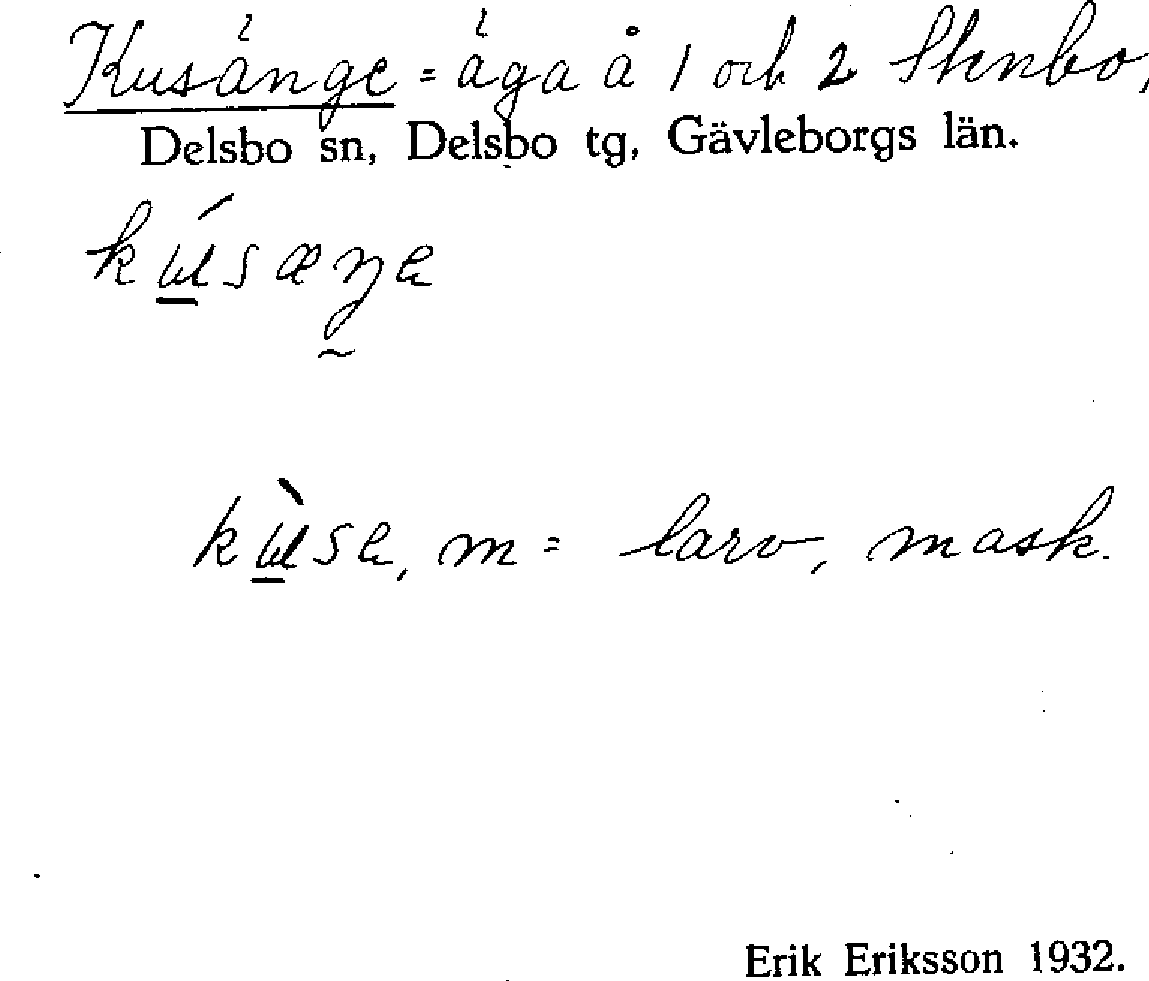 Kusänge = äga å 1 och 2 Stenbo,
Delsbo sn, Delsbo tg, Gävleborgs län.
kú̱sæŋe
kù̱se, m = larv, mask.
Erik Eriksson 1932.